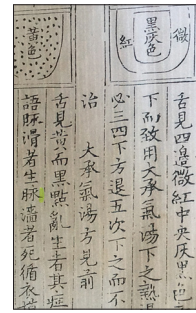 微
黑灰色
紅
黃色
舌見四邊微紅中央灰黑色
下而致用大承氣湯下之熱退
必三四下方退五次下之而不
治 大承氣湯方見前
舌見黃而黑點亂生者其症
語脉滑者生脉濇者死循衣摸